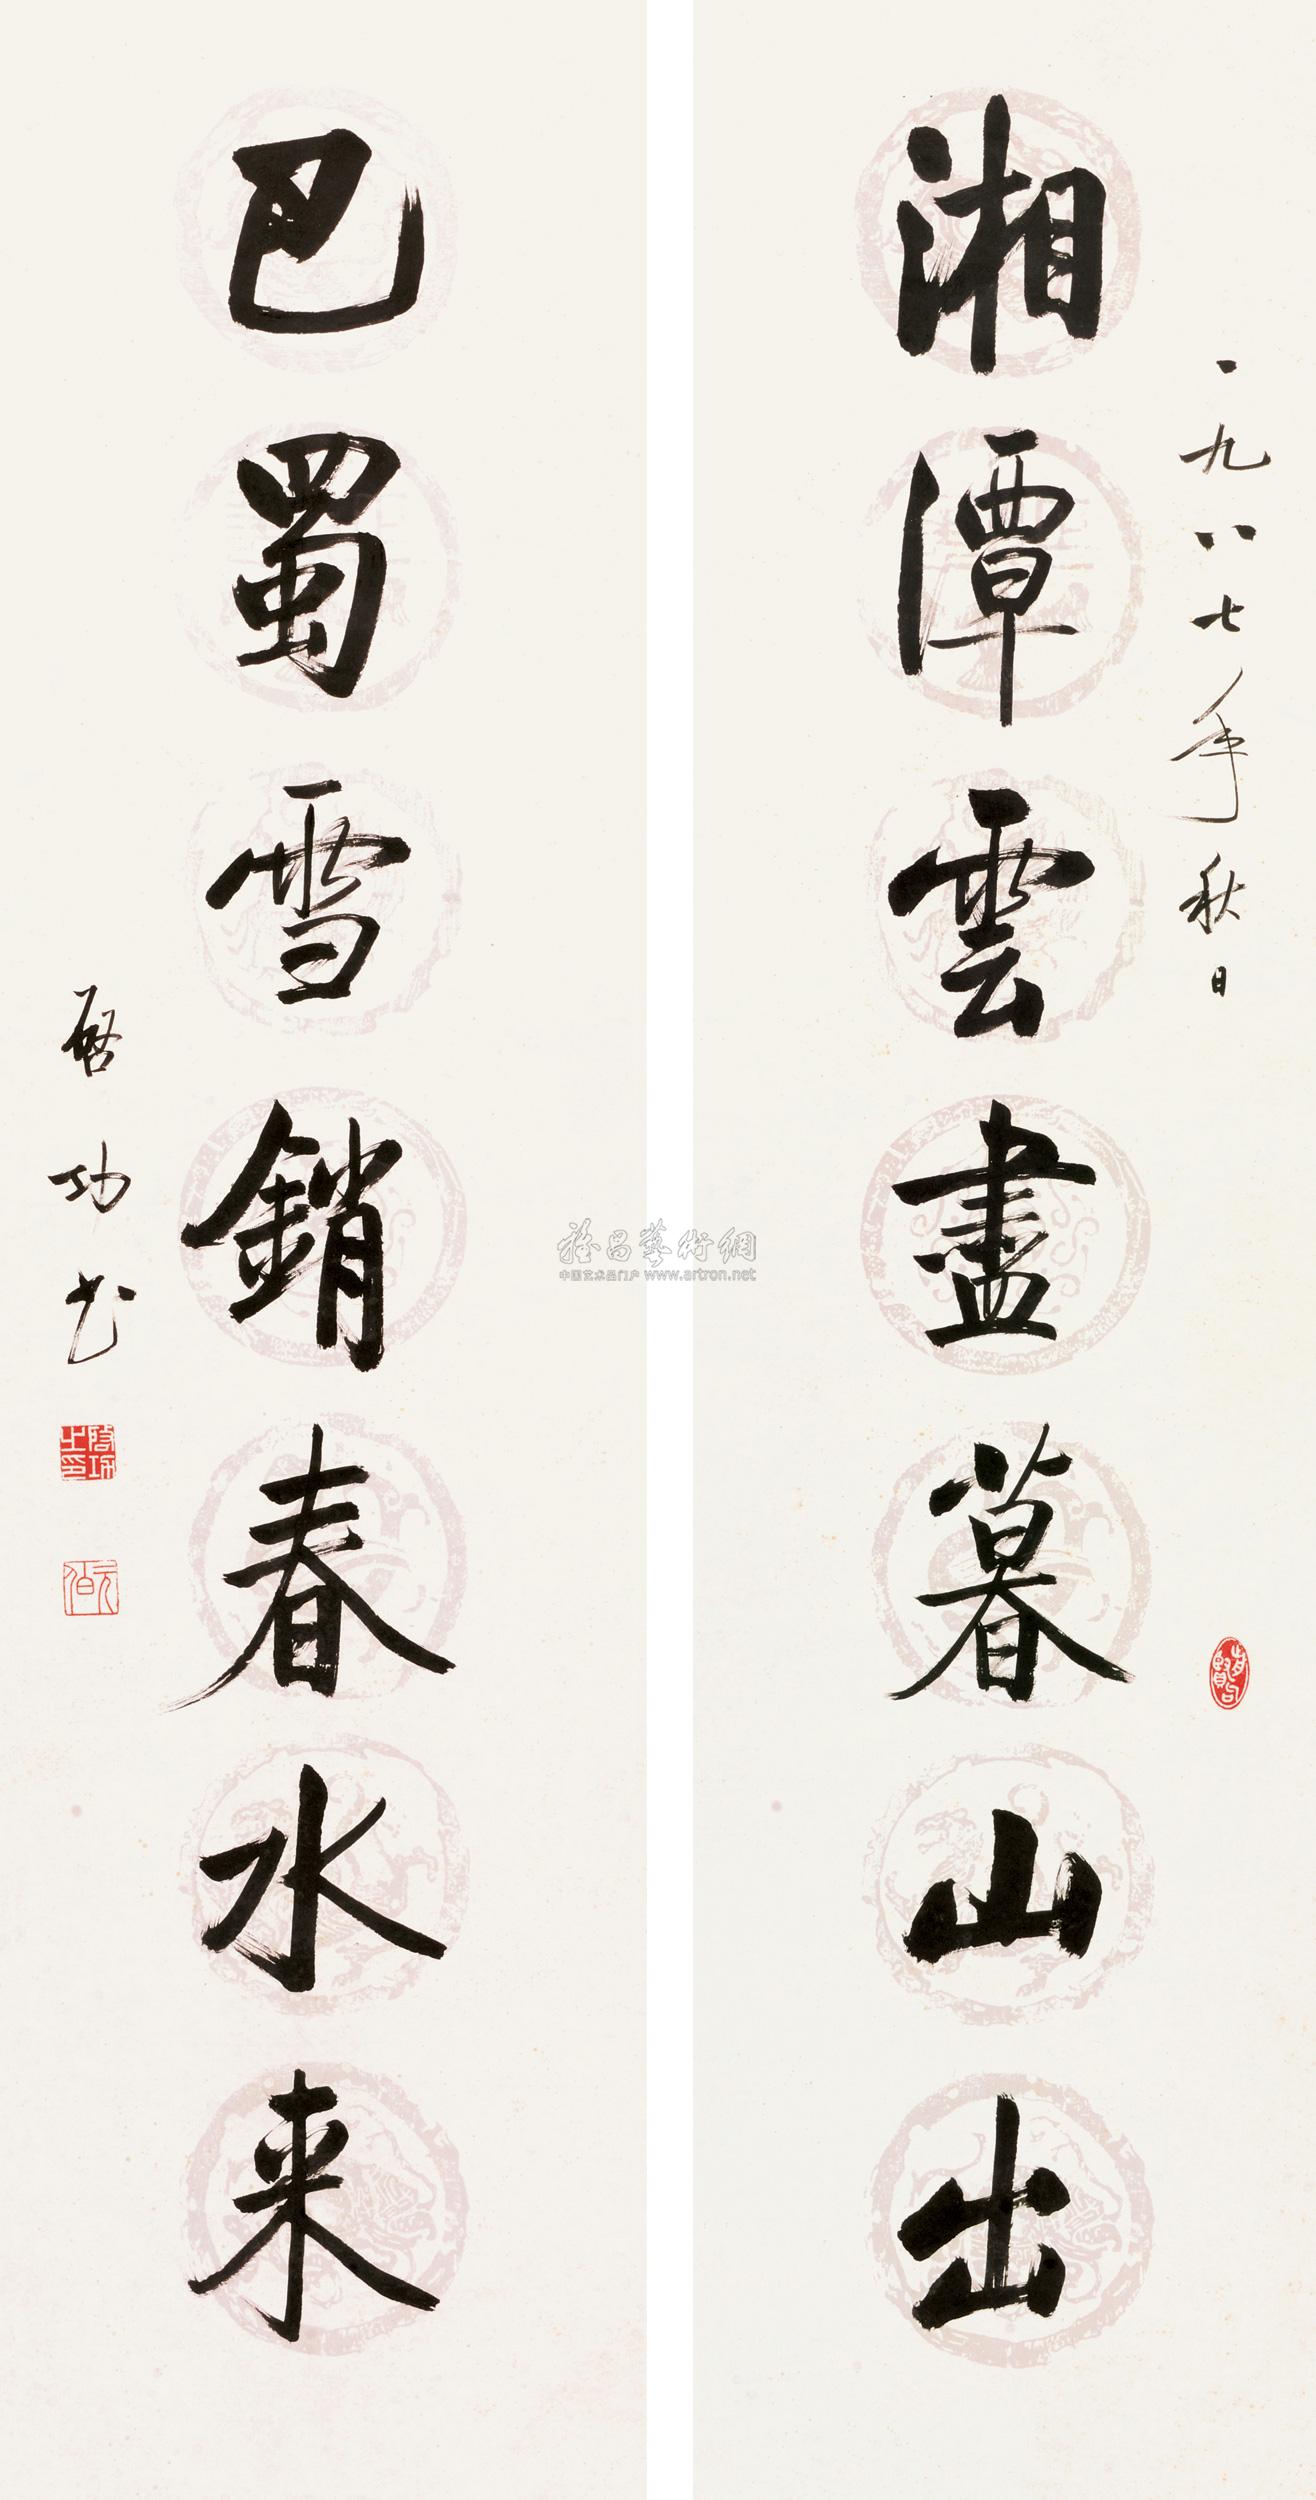 一九八七年秋日
湘潭雲盡暮山出
巴蜀雪銷春水来
啓功书
啓功之印
元伯
雅昌藝術網
中国艺术品门户 www.artron.net